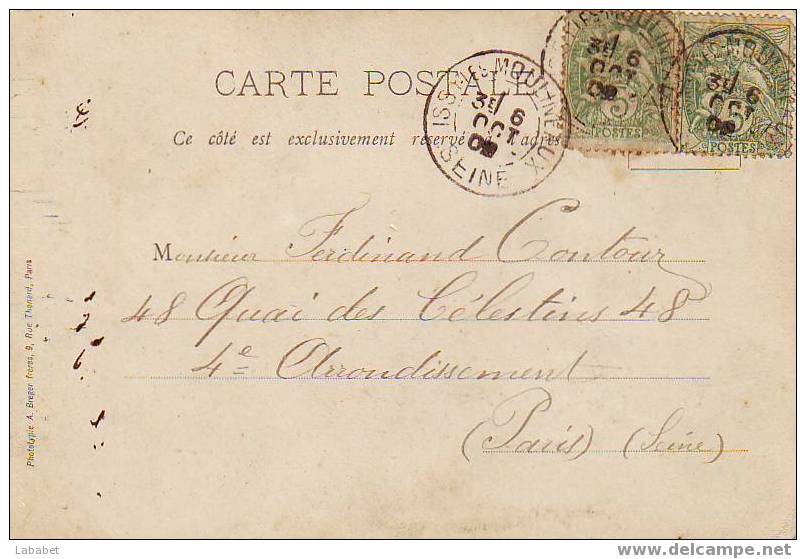 CARTE POSTALE
Ce côté est exclusivement réservé à l'adresse
ISSY-LES-MOULINEAUX
3E 6
OCT
SEINE
5
POSTES
3E 6
OCT
POSTES
Monsieur Ferdinand Contour
48 Quai des Célestins 48
4e Arrondissement
(Paris) (Seine)
Phototypie A. Breger frères, 9, Rue Thenard, Paris
Lababet
delcampe.net